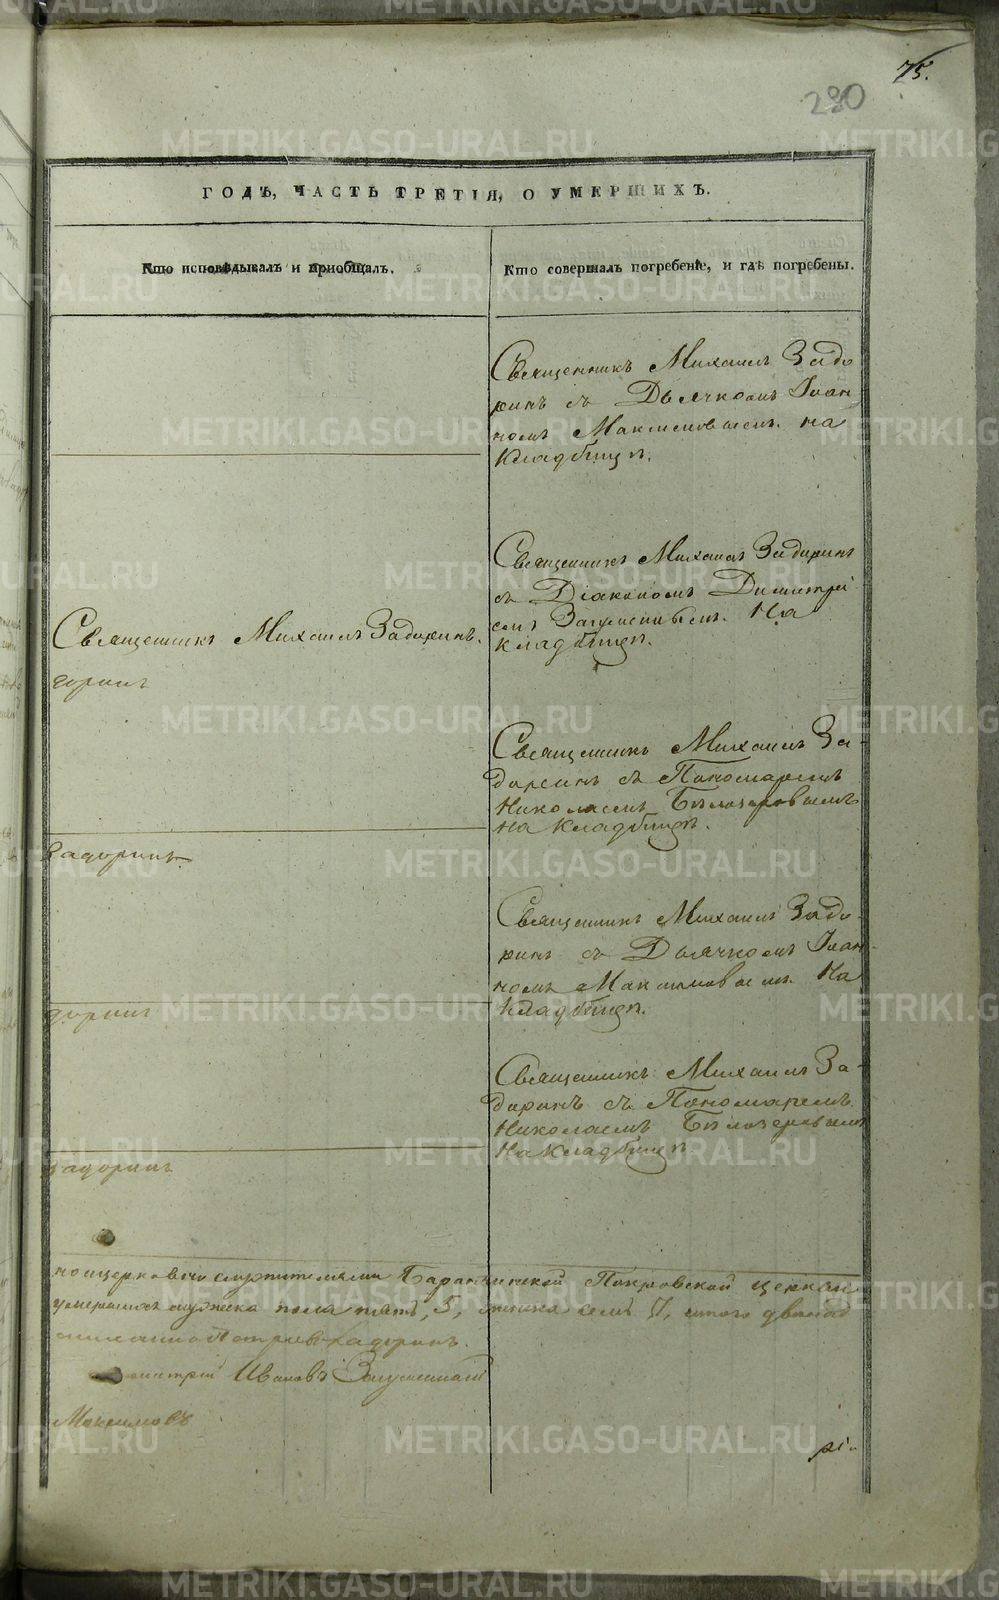 75.
280
ГОДЪ, ЧАСТЬ ТРЕТІЯ, О УМЕРШИХЪ.
Кто исповѣдывалъ и приобщалъ.
Кто совершалъ погребеніе, и гдѣ погребены.
Священникъ Михаилъ Задо
ринъ съ Дьячкомъ Іоан
номъ Максимовымъ. на
Кладбищѣ.
Священникъ Михаилъ Задоринъ
съ Діакономъ Димитрі
емъ Загуменнымъ. На
кладбищѣ.
Священникъ Михаилъ Задоринъ.
горинъ
Священникъ Михаилъ За-
доринъ съ Пономаремъ
Николаемъ Бѣлозеровымъ
на Кладбищѣ.
Задоринъ
Священникъ Михаилъ Задо-
ринъ съ Дьячкомъ Іоан-
номъ Максимовымъ. На
Кладбищѣ.
доринъ
Священникъ Михаилъ За-
доринъ съ Пономаремъ
Николаемъ Бѣлозеровымъ
На Кладбищѣ
Задоринъ
церковнослужителями Баранчинской Покровской церкви
умершихъ мужеска пола пять, 5, женска семь 7, итого двенад
Петровъ Задоринъ.
митрій Ивановъ Загуменный
Максимовъ
METRIKI.GASO-URAL.RU